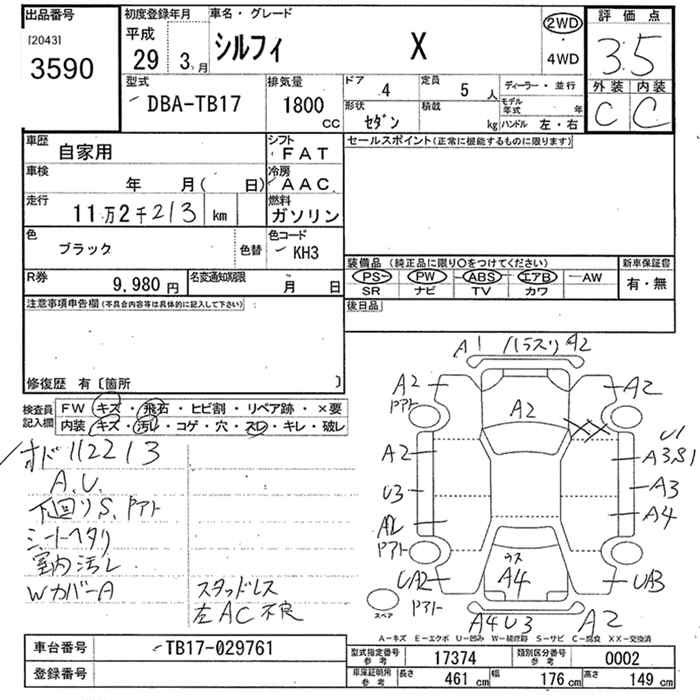 出品番号
[2043]
3590
初度登録年月
平成
29 3月
車名・グレード
シルフィ X
2WD
4WD
評価点
3.5
外装 内装
C C
型式
DBA-TB17
排気量
1800
CC
ドア
4
定員
5人
形状
セダン
積載
kg
ディーラー・並行
モデル年式 年
ハンドル 左・右
車歴
自家用
シフト
FAT
車検
年 月( 日)
冷房
AAC
走行
11万2千213 km
燃料
ガソリン
色
ブラック
色替
色コード
KH3
R券
9,980円
名変通知期限
月 日
セールスポイント(正常に機能するものに限ります)
装備品(純正品に限り○をつけてください)
PS PW ABS エアB AW
SR ナビ TV カワ
新車保証書
有・無
後日品
注意事項申告欄(不具合内容等は具体的に記入して下さい)
修復歴 有〔箇所 〕
検査員記入欄
FW キズ・飛石・ヒビ割・リペア跡・×要
内装 キズ・汚レ・コゲ・穴・スレ・キレ・破レ
オド112213
A.U.
下回りS、Pアト
シートヘタリ
室内汚レ
WカバーA
スタッドレス
左AC不良
A1 ハラスリ A2
A2
Pアト
A2
A2
A2
U1
A3S1
U3
A3
A4
A2
Pアト
UA2
Pアト
ウス
A4
UA3
スペア
A4U3
A2
A−キズ E−エクボ U−凹み W−補修跡 S−サビ C−腐食 XX−交換済
車台番号
TB17-029761
登録番号
型式指定番号 参考
17374
類別区分番号 参考
0002
車庫証明 参考
長さ 461cm
幅 176cm
高さ 149cm